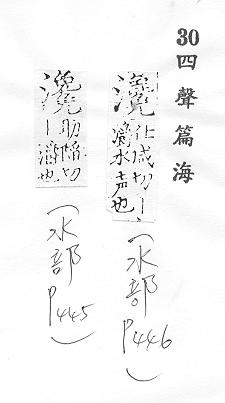 30四聲篇海
仕咸切｜
水声也
(水部P446)
助陷切
｜也
(水部P445)